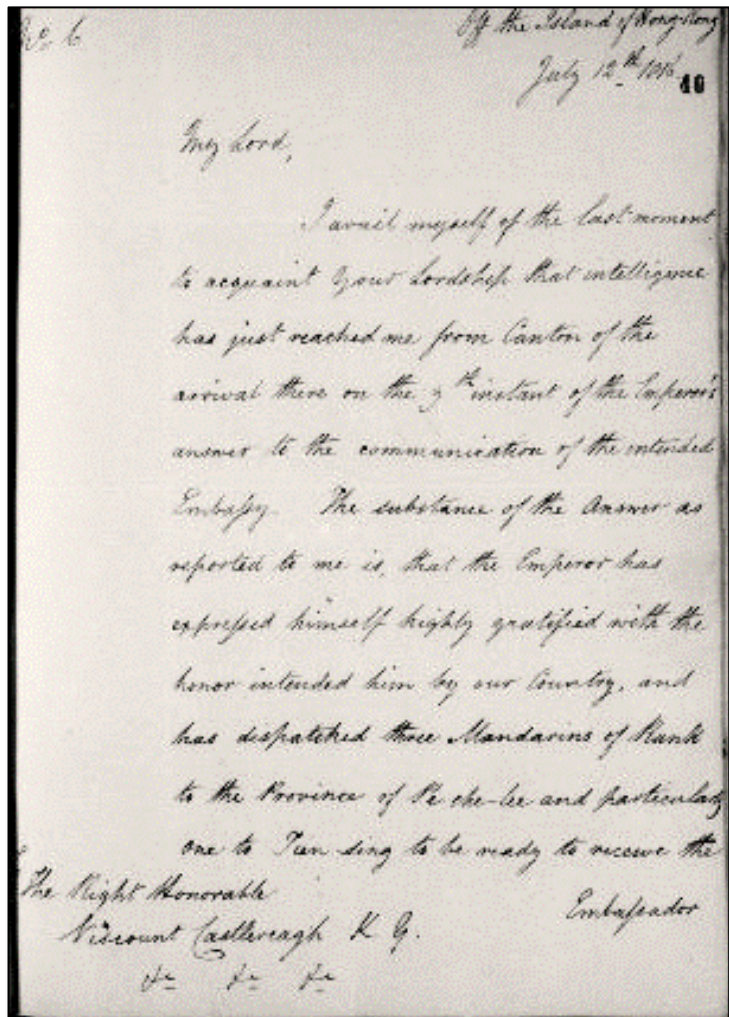 No 6
Off the Island of Hong Kong
July 12th 1816
40
My Lord,
I avail myself of the last moment
to acquaint Your Lordship that intelligence
has just reached me from Canton of the
arrival there on the th instant of the Emperor's
answer to the communication of the intended
Embassy. The substance of the Answer as
reported to me is, that the Emperor has
expressed himself highly gratified with the
honor intended him by our Country, and
has dispatched three Mandarins of Rank
to the Province of Pe che-lee and particularly
one to Tien sing to be ready to receive the
Embassador
The Right Honorable
Viscount Castlereagh K G.
&c &c &c